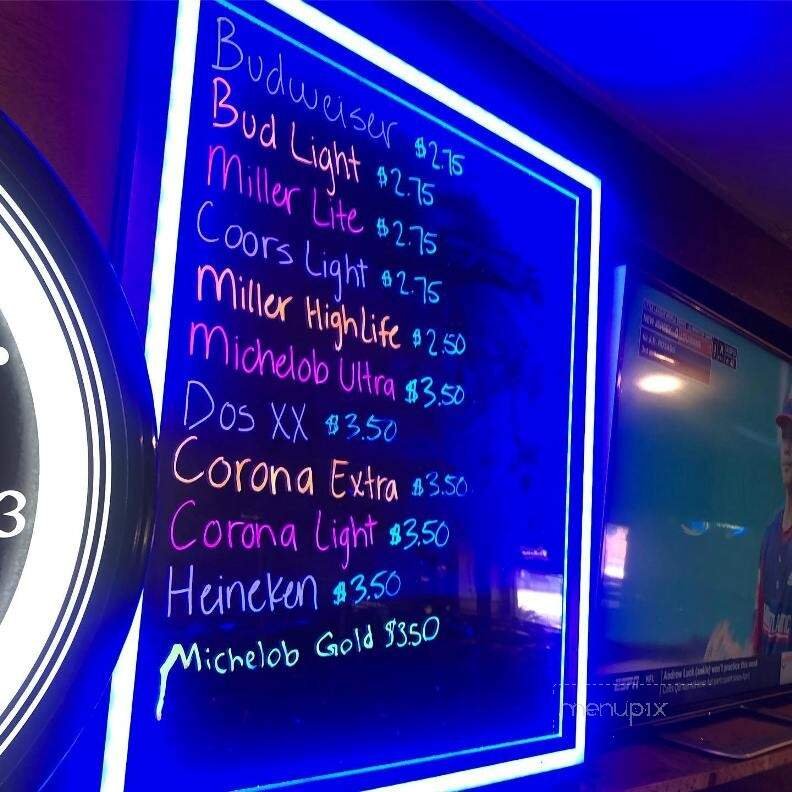 Budweiser $2.75
Bud Light $2.75
Miller Lite $2.75
Coors Light $2.75
Miller HighLife $2.50
Michelob Ultra $3.50
Dos XX $3.50
Corona Extra $3.50
Corona Light $3.50
Heineken $3.50
Michelob Gold $3.50
3
ESPN NFL
Andrew Luck (ankle) won't practice this week
menupix